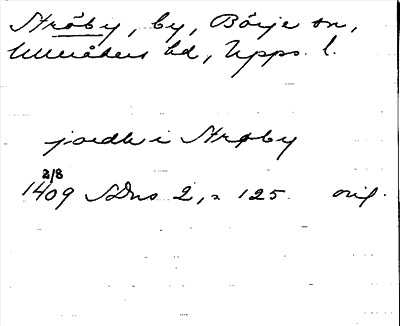 Ströby, by, Börje sn,
Ulleråkers hd, Upps. l.
jordh i Strøby
3/8
1409 SDns 2, s 125. orig.